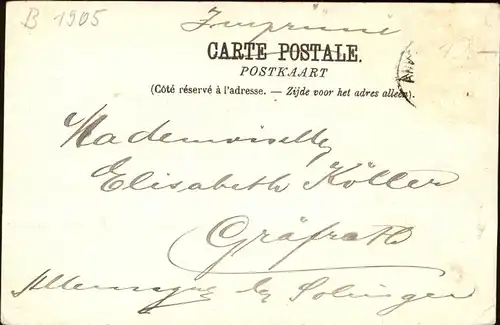 B 1905
Imprimé
CARTE POSTALE.
POSTKAART
(Côté réservé à l'adresse. — Zijde voor het adres alleen).
Mademoiselle
Elisabeth Köller
Gräfrath
Allemagne bei Solingen